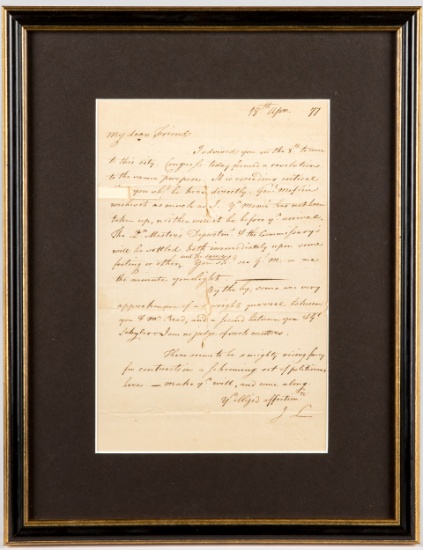 18th Apr. 77
My dear Friend
I advised you on the 8th to come
to this city. Congress today formed a resolution
to the same purpose. It is exceeding critical
you sh be here directly. Genl Mifflin
wishes it as much as I. Yr Memo has not been
taken up, neither will it be before yr arrival.
The Qr Masters Departm & the Commissary's
will be settled both immediately upon some
footing or other, You see G M or me
the minute you light
By the by, some are very
apprehensive of a quarrel between
you & Mr Read, and a between you &
Schyler I am no judge of such matters.
There seems to be a mighty
for contracts in a scheming set of
here — make yr will, and come along
Yr obliged affection
J L